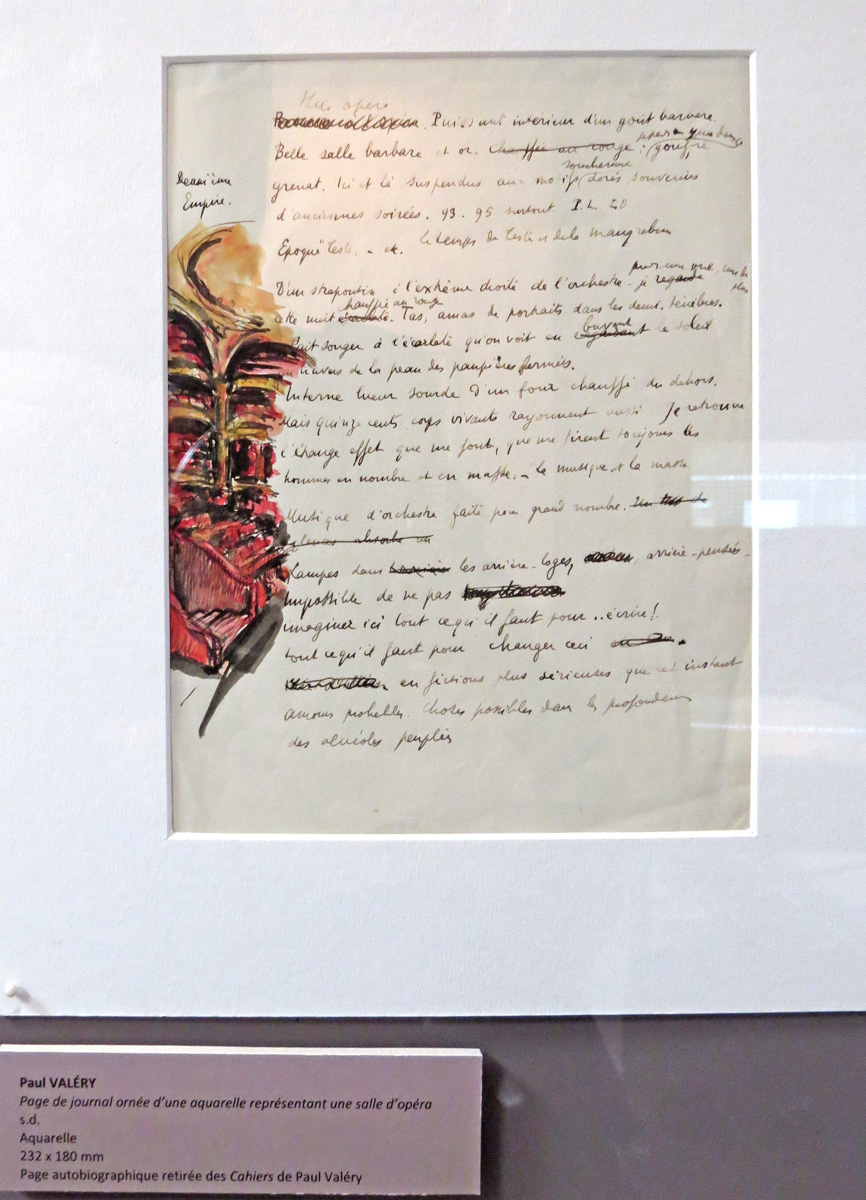 Vieil opéra
Puissant intérieur d'un goût barbare.
Belle salle barbare et or. chauffée au rouge ; (gouffre
sombre
grenat. Ici et là suspendus aux motifs dorés, souvenirs
d'anciennes soirées. 93. 95 surtout P. L. ED
Epoque Teste. - etc. le temps de Teste et de la
Deuxième
Empire.
D'un strapontin à l'extrême droite de l'orchestre je regarde
chauffé au rouge
cette nuit écarlate. Tas, amas de portraits dans les demi-ténèbres.
buvant
Fait songer à l'écarlate qu'on voit en regardant le soleil
à travers de la peau des paupières fermées.
Interne lueur sourde d'un four chauffé du dehors.
Mais quinze cents corps vivants rayonnent aussi. Je retrouve
l'étrange effet que me font, que me firent toujours les
hommes en nombre et en masse. - la musique et la masse
Musique d'orchestre faite pour grand nombre. Un
absorbe un
Lampes dans les arrière-loges, arrière-pensées -
impossible de ne pas
imaginer ici tout ce qu'il faut pour .. écrire !
tout ce qu'il faut pour changer ceci
en fictions plus sérieuses que cet instant
amours probables. Choses possibles dans les profondeurs
des alvéoles peuplés
Paul VALÉRY
Page de journal ornée d'une aquarelle représentant une salle d'opéra
s.d.
Aquarelle
232 x 180 mm
Page autobiographique retirée des Cahiers de Paul Valéry